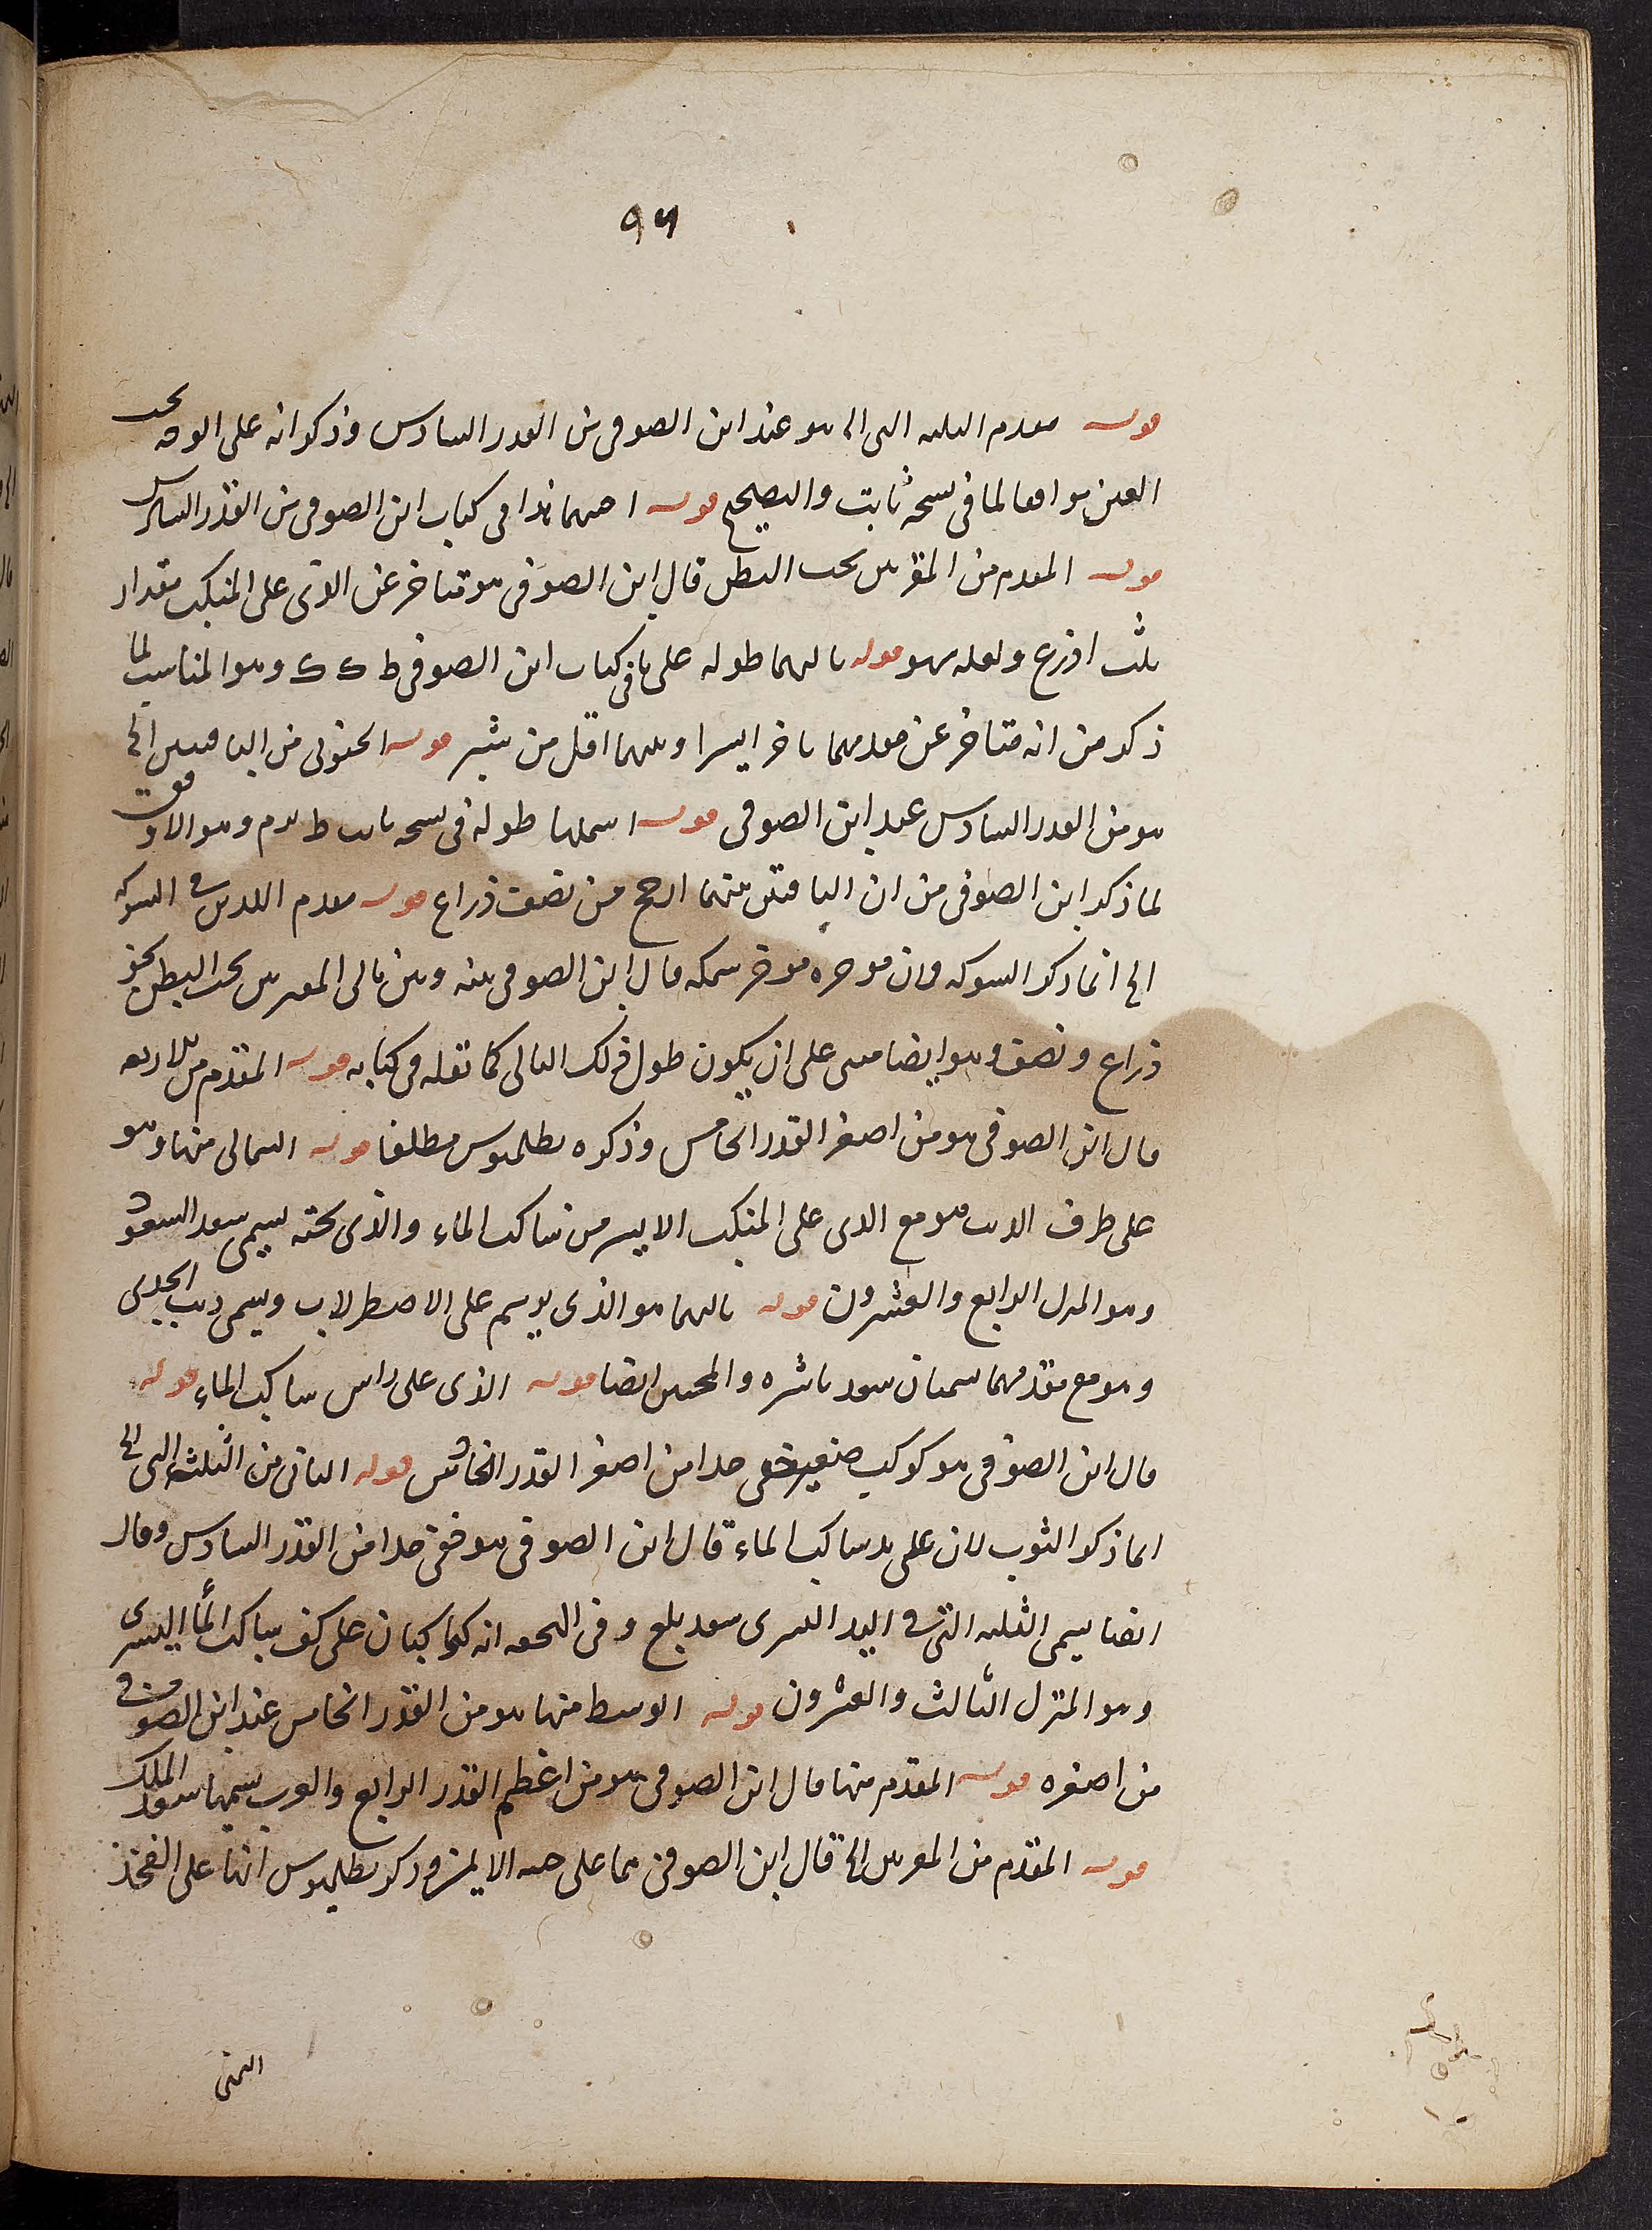 ٩٦
قوله مقدم الثلثه التى الى هو عند ابن الصوفى من القدر السادس وذكر انه على الوجه تحت
العين موافقا لما فى نسخة ثابت والتصحيح قوله احدهما هذا فى كتاب ابن الصوفى من القدر السادس
قوله المقدم من المقترنين تحت البطن قال ابن الصوفى هو متاخر عن الذى على المنكب مقدار
ثلث اذرع ولعله سهو قوله تاليهما طوله على ما فى كتاب ابن الصوفى ط ك ك وهو المناسب لما
ذكر من انه متاخر عن مقدمهما تاخرا يسيرا وبينهما اقل من شبر قوله الجنوبى من الباقيين الى
هو من القدر السادس عند ابن الصوفى قوله اسملها طوله فى نسخه ثابت ط ىدم وهو الاوفق
لما ذكر ابن الصوفى من ان الباقيين بينهما ارجح من نصف ذراع قوله مقدم اللذين فى الشوكه
الى انما ذكر الشوكه لان موخره موخر سمكه قال ابن الصوفى بينه وبين تالى المقترنين تحت البطن نحو
ذراع ونصف وهو ايضا مبنى على ان يكون طول ذلك التالى كما نقله فى كتابه قوله المقدم من الاربعه
قال ابن الصوفى هو من اصغر القدر الخامس وذكره بطلميوس مطلقا قوله الشمالى منها وهو
على طرف الذنب هو مع الذى على المنكب الايسر من ساكب الماء والذى تحته يسمى سعد السعود
وهو المنزل الرابع والعشرون قوله تاليهما هو الذى يرسم على الاصطرلاب ويسمى ذنب الجدى
وهو مع مقدمهما يسميان سعد ناشره والمحبين ايضا قوله الذى على راس ساكب الماء قوله
قال ابن الصوفى هو كوكب صغير خفى جدا من اصغر القدر الخامس قوله الثانى من الثلثه التى الى
انما ذكر الثوب لان على يد ساكب الماء قال ابن الصوفى هو خفى جدا من القدر السادس وقال
ايضا يسمى الثلثه التى فى اليد اليسرى سعد بلع وفى التحفه انه كوكبان على كف ساكب الماء اليسرى
وهو المنزل الثالث والعشرون قوله الوسط منها هو من القدر الخامس عند ابن الصوفى
من اصغره قوله المقدم منها قال ابن الصوفى هو من اعظم القدر الرابع والعرب يسميها سعد الملك
قوله المقدم من المقترنين الى قال ابن الصوفى هما على جنبه الايمن وذكر بطلميوس انها على الفخذ
اليمنى